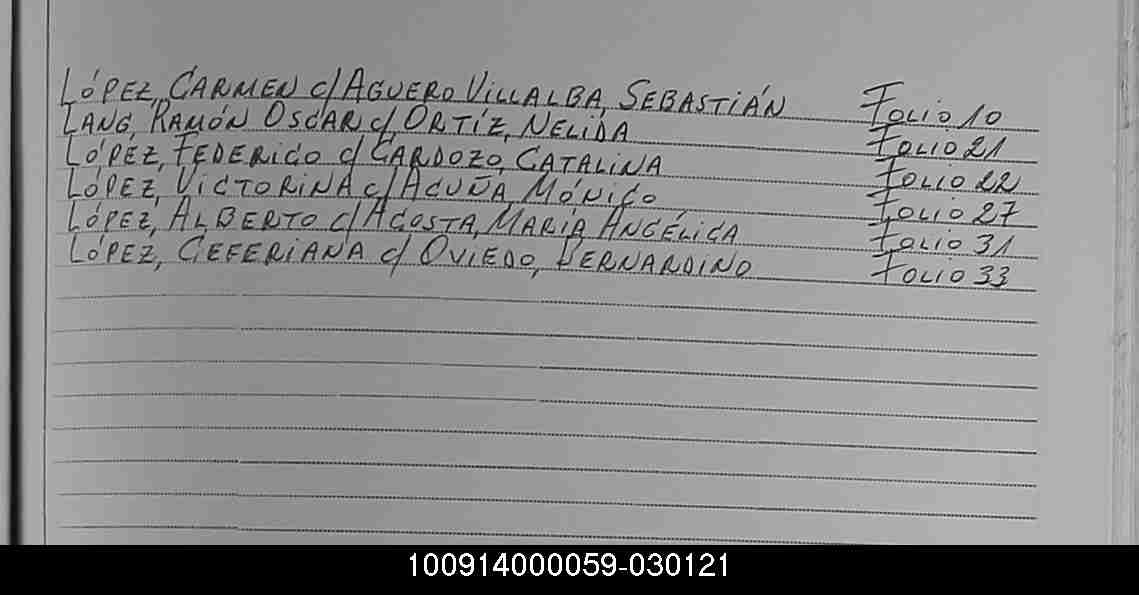 LÓPEZ, CARMEN c/ AGUERO VILLALBA, SEBASTIÁN Folio 10
LANG, RAMÓN OSCAR c/ ORTÍZ, NELIDA Folio 21
LÓPEZ, FEDERICO c/ CARDOZO, CATALINA Folio 22
LÓPEZ, VICTORINA c/ ACUÑA, MÓNICO Folio 27
LÓPEZ, ALBERTO c/ ACOSTA, MARÍA ANGÉLICA Folio 31
LÓPEZ, CEFERIANA c/ OVIEDO, BERNARDINO Folio 33
100914000059-030121